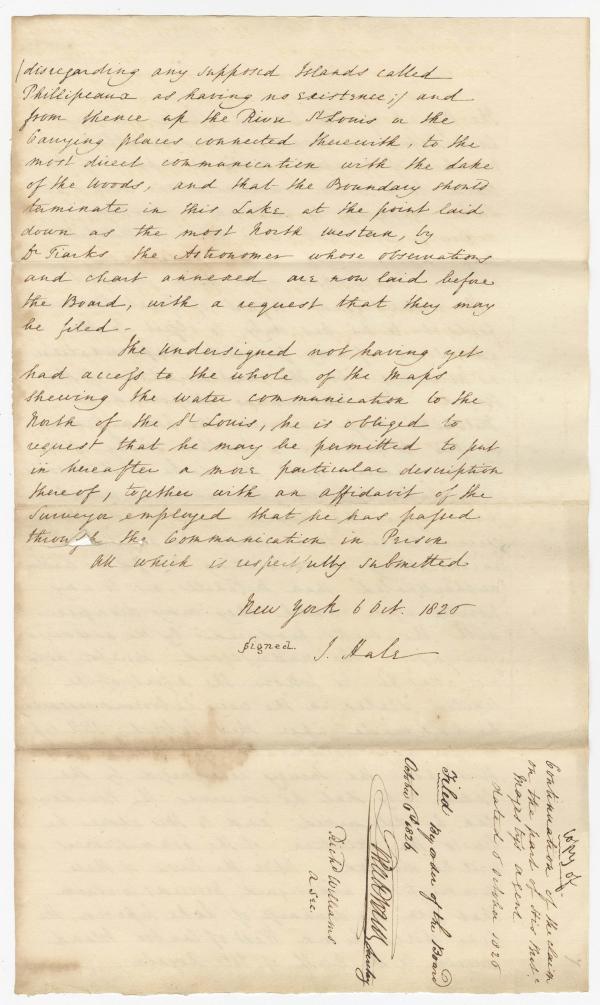 (disregarding any supposed Islands called
Phillipeaux as having no existence;) and
from thence up the River St Louis or the
Carrying places connected therewith, to the
most direct communication with the Lake
of the Woods, and that the Boundary should
terminate in this Lake at the point laid
down as the most North western, by
Dr Tiarks the Astronomer whose observations
and chart annexed are now laid before
the Board, with a request that they may
be filed -
The Undersigned not having yet
had access to the whole of the Maps
shewing the water communication to the
North of the St Louis, he is obliged to
request that he may be permitted to put
in hereafter a more particular description
thereof, together with an affidavit of the
Surveyor employed that he has passed
through the Communication in Person
All which is respectfully submitted
New York 6 Oct. 1826
Signed. J. Hale
Copy of
Continuation of the claim
on the part of His Brite
Majesty's agent
dated 5 October 1826
Filed By order of the Board
October 6th 1826
Richd Williams
a Sec.